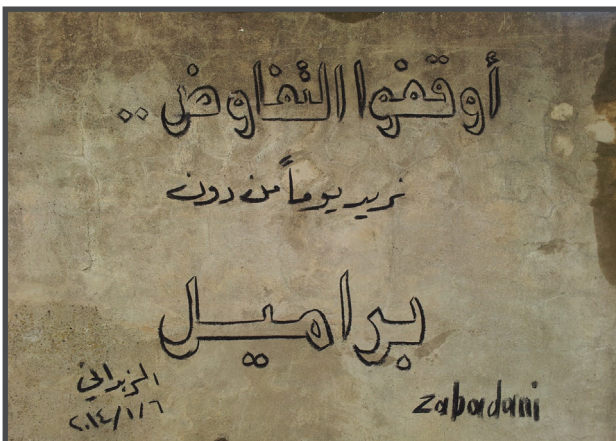 أوقفوا التفاوض ..
نريد يوماً من دون
براميل
الزبداني
٢٠١٤/١/٦
zabadani